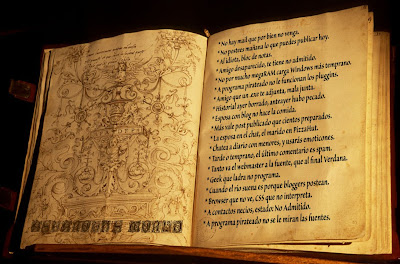 * No hay mail que por bien no venga.
* No postees mañana lo que puedes publicar hoy.
* Al idiota, bloc de notas.
* Amigo desaparecido, te tiene no admitido.
* No por mucho megaRAM carga Windows más temprano.
* A programa pirateado no le funcionan los pluggins.
* Amigo que un .exe te adjunta, mala junta.
* Historial ayer borrado, anteayer hubo pecado.
* Esposa con blog no hace la comida.
* Más vale post publicado que cientos preparados.
* La esposa en el chat, el marido en PizzaHut.
* Chatea a diario con menores, y usarás emoticones.
* Tarde o temprano, el último comentario es spam.
* Tanto va el webmaster a la fuente, que al final Verdana.
* Geek que ladra no programa.
* Cuando el río suena es porque bloggers postean.
* Browser que no ve, CSS que no interpreta.
* A contactos necios, estado: No Admitido.
* A programa pirateado no se le miran las fuentes.